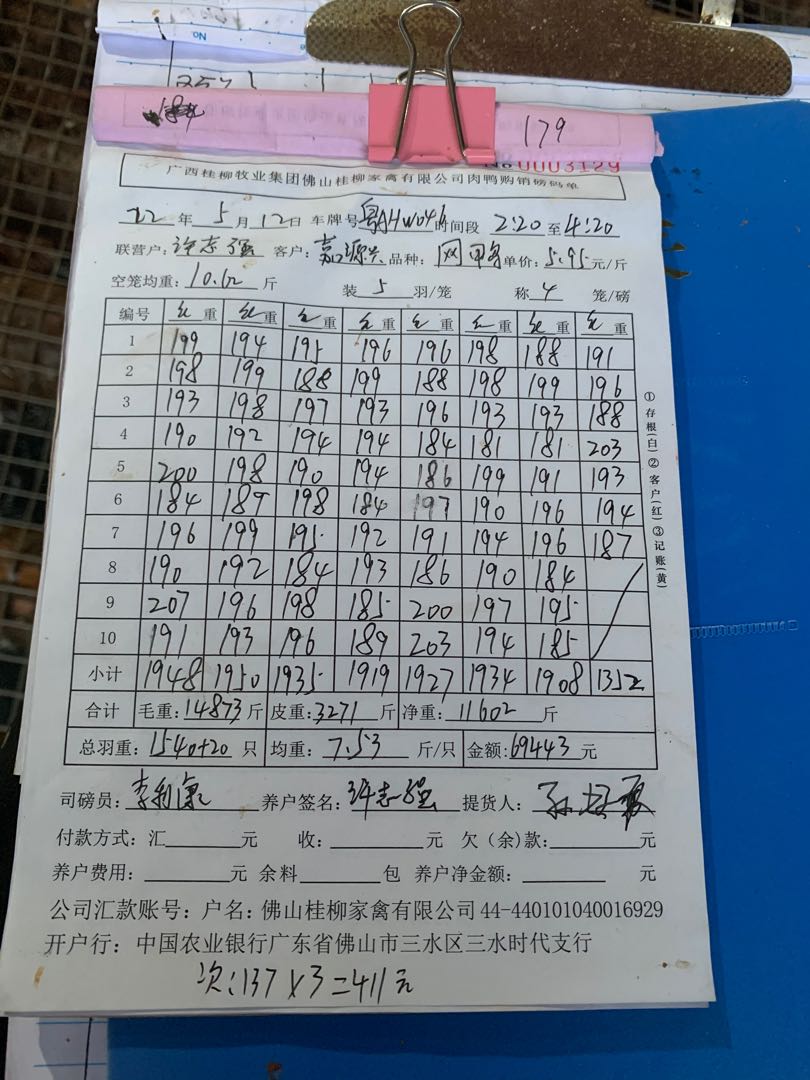 No
257
184
179
No 0003129
广西桂柳牧业集团佛山桂柳家禽有限公司肉鸭购销磅码单
22年5月12日 车牌号粤AHW046时间段 2:20至4:20
联营户:许志强 客户:嘉源兴 品种: 单价:5.95元/斤
空笼均重:10.62斤 装5羽/笼 称4笼/磅
编号 毛重 毛重 毛重 毛重 毛重 毛重 毛重 毛重
1 199 194 195 196 196 198 188 191
2 198 199 188 199 188 198 199 196
3 193 198 197 193 196 193 193 188
4 190 192 194 194 184 181 181 203
5 200 198 190 194 186 199 191 193
6 184 189 198 184 197 190 196 194
7 196 199 195 192 191 194 196 187
8 190 192 184 193 186 190 184
9 207 196 198 185 200 197 195
10 191 193 196 189 203 194 185
小计 1948 1950 1935 1919 1927 1934 1908 1352
合计 毛重:14873斤 皮重:3271斤 净重:11602斤
总羽重:1540+20只 均重:7.53斤/只 金额:69443元
司磅员:李利康 养户签名:许志强 提货人:
付款方式:汇 元 收: 元 欠(余)款: 元
养户费用: 元 余料 包 养户净金额: 元
公司汇款账号:户名:佛山桂柳家禽有限公司44-440101040016929
开户行:中国农业银行广东省佛山市三水区三水时代支行
次:137×3=411元
①存根(白)②客户(红)③记账(黄)